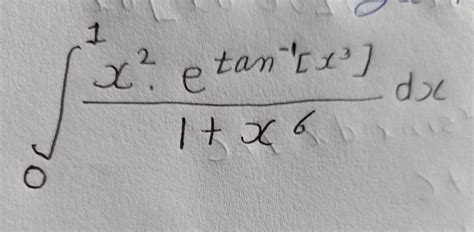 ∫₀¹ x². e^(tan⁻¹[x³]) / (1 + x⁶) dx